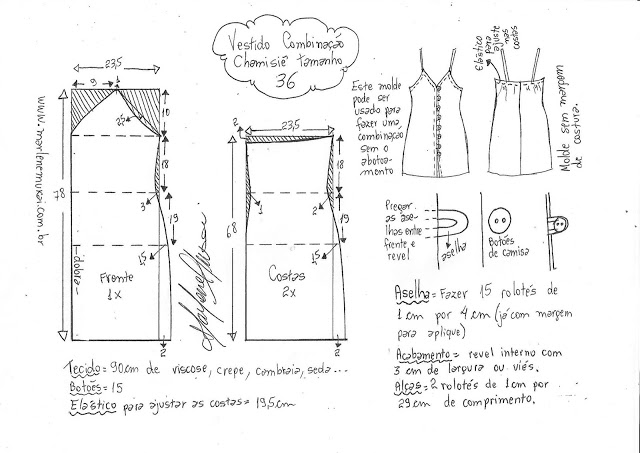 Vestido Combinação
Chamisiê tamanho
36
www.marlenemukai.com.br
23,5
9
1
22
10
18
3
19
78
1,5
dobra
Frente
1x
2
2
23,5
18
1
2
19
68
1,5
Costas
2x
2
Este molde
pode ser
usado para
fazer uma
combinação
sem o
abotoa-
mento
Elástico
para
ajuste
nas
costas
Molde sem margem
de costura.
Pregar
as ase-
lhas entre
frente e
revel
aselha
Botões
de camisa
Aselha = Fazer 15 rolotés de
1 cm por 4 cm (já com margem
para aplique)
Acabamento = revel interno com
3 cm de largura ou viés.
Alças = 2 rolotés de 1 cm por
29 cm de comprimento.
Tecido = 90 cm de viscose, crepe, cambraia, seda...
Botões = 15
Elástico para ajustar as costas = 19,5 cm